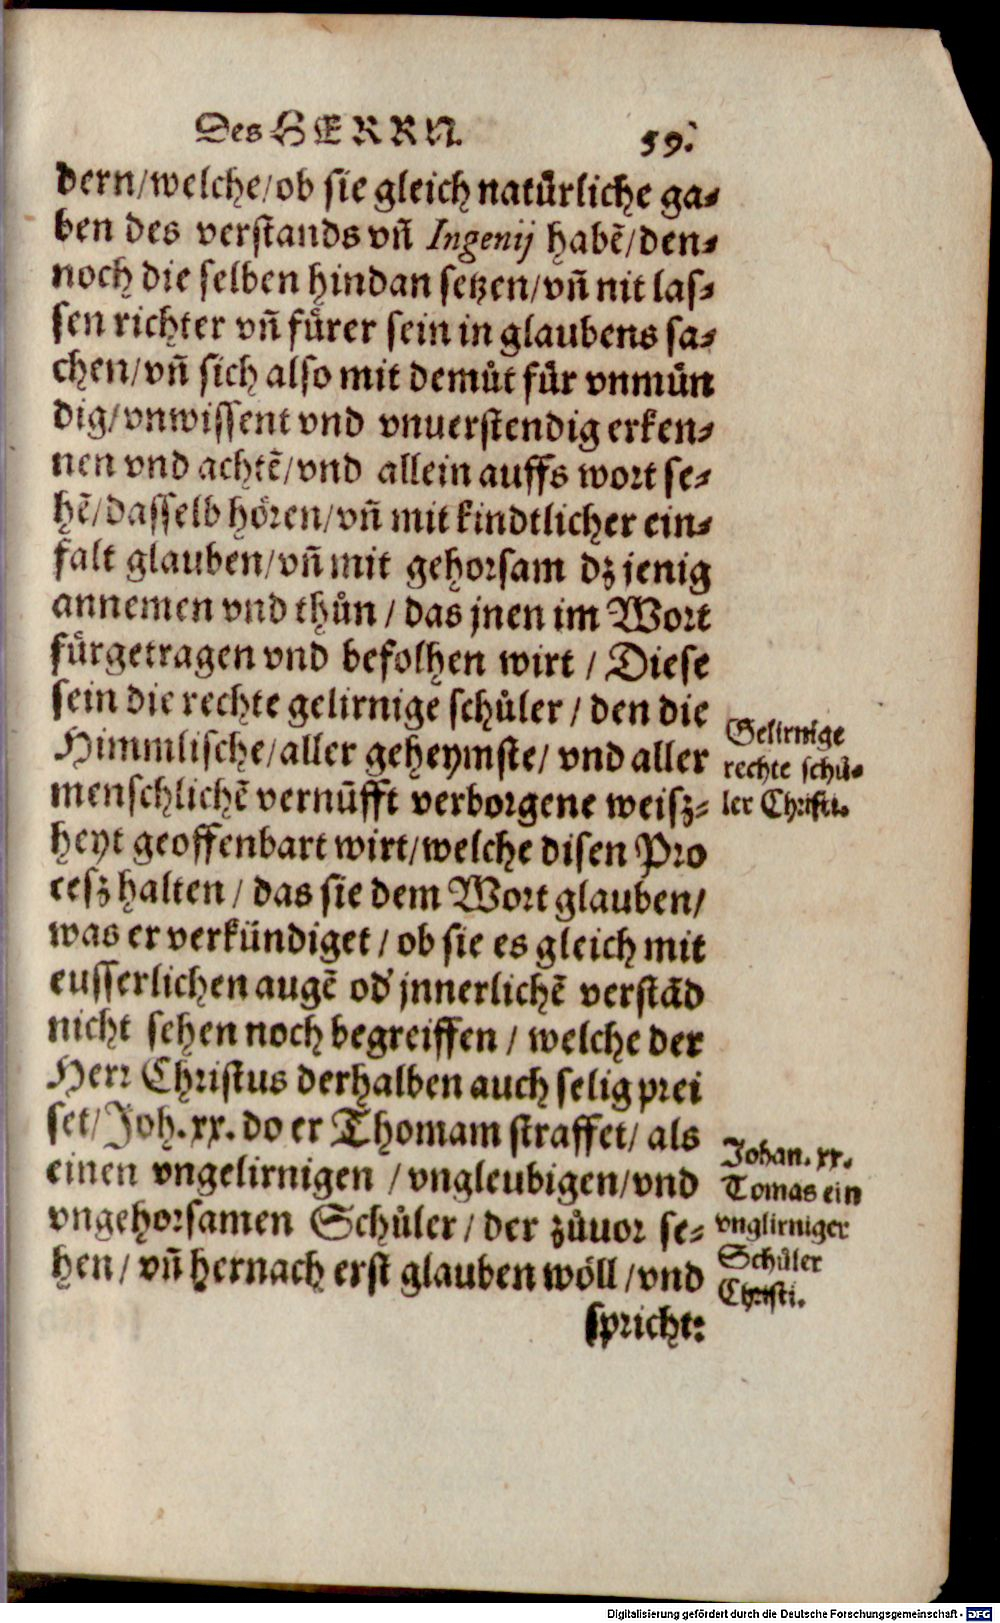 Des HERRN. 59.
dern/welche/ob sie gleich natürliche ga⸗
ben des verstands vñ Ingenij habẽ/den⸗
noch die selben hindan setzen/vñ nit las⸗
sen richter vñ fürer sein in glaubens sa⸗
chen/vñ sich also mit demůt für vnmün
dig/vnwissent vnd vnuerstendig erken⸗
nen vnd achtẽ/vnd allein auffs wort se⸗
hẽ/dasselb hören/vñ mit kindtlicher ein⸗
falt glauben/vñ mit gehorsam dz jenig
annemen vnd thůn / das jnen im Wort
fürgetragen vnd befolhen wirt / Diese
sein die rechte gelirnige schůler / den die
Himmlische/aller geheymste/ vnd aller
menschlichẽ vernũfft verborgene weisz⸗
heyt geoffenbart wirt/welche disen Pro
cesz halten / das sie dem Wort glauben/
was er verkündiget / ob sie es gleich mit
eusserlichen augẽ od' jnnerlichẽ verstãd
nicht sehen noch begreiffen / welche der
Herr Christus derhalben auch selig prei
set/ Joh. xx. do er Thomam straffet/ als
einen vngelirnigen / vngleubigen/vnd
vngehorsamen Schůler / der zůuor se⸗
hen / vñ hernach erst glauben wöll / vnd
spricht:
Gelirnige
rechte schů⸗
ler Christi.
Johan. xx.
Tomas ein
vnglirniger
Schůler
Christi.
Digitalisierung gefördert durch die Deutsche Forschungsgemeinschaft - DFG